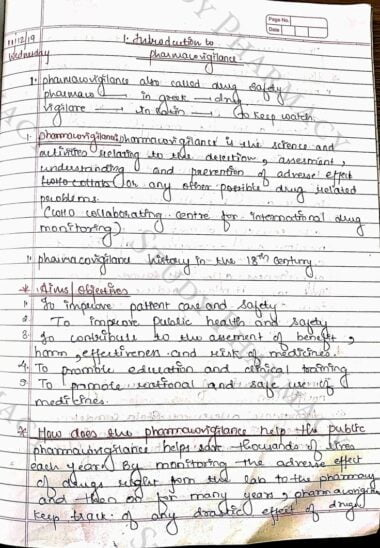 Page No.
Date
11/12/19
Wednesday
1. Introduction to
pharmacovigilance
1. pharmacovigilance also called drug safety
pharmaco → in greek → drug
vigilare → in latin → to keep watch.
pharmacovigilance: pharmacovigilance is the science and
activities relating to the detection, assesment,
understanding and prevention of adverse effect
or any other possible drug related
problems.
(WHO collaborating centre for international drug
monitoring)
1. pharmacovigilance history in the 18th century.
* Aims/Objectives
1. To improve patient care and safety
2. To improve public health and safety
3. To contribute to the assement of benefit,
harm, effectiveness and risk of medicines.
4. To promote education and clinical training
5. To promote rational and safe use of
medicines.
* How does the pharmacovigilance help the public
pharmacovigilance helps save thousands of lives
each year. By monitoring the adverse effect
of drugs right from the lab to the pharmacy
and then on for many years, pharmacovigilance
keep track of any drastic effect of drugs
STUDY PHARMACY